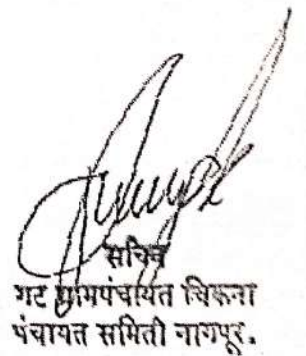 सचिव
गट ग्रामपंचायत चिकना
पंचायत समिती नागपूर.